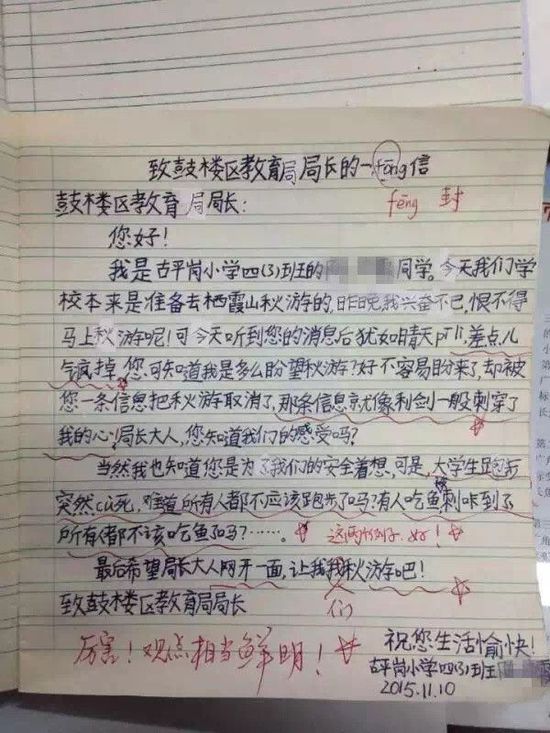 致鼓楼区教育局局长的一fēng信
fēng 封
鼓楼区教育局局长:
您好!
我是古平岗小学四(3)班的 同学。今天我们学
校本来是准备去栖霞山秋游的,昨晚我兴奋不已,恨不得
马上秋游呢!可今天听到您的消息后犹如晴天pī lì,差点儿
气疯掉 您可知道我是多么盼望秋游?好不容易盼来了却被
您一条信息把秋游取消了,那条信息就像利剑一般刺穿了
我的心!局长大人,您知道我们的感受吗?
当然我也知道您是为了我们的安全着想,可是,大学生跑步
突然cù死,难道所有人都不应该跑步了吗?有人吃鱼刺咔到了
所有人都不该吃鱼了吗?……。 这两个例子好!
最后希望局长大人网开一面,让我我秋游吧!
们
致鼓楼区教育局局长
厉害!观点相当鲜明!
祝您生活愉快!
古平岗小学四(3)班
2015.11.10